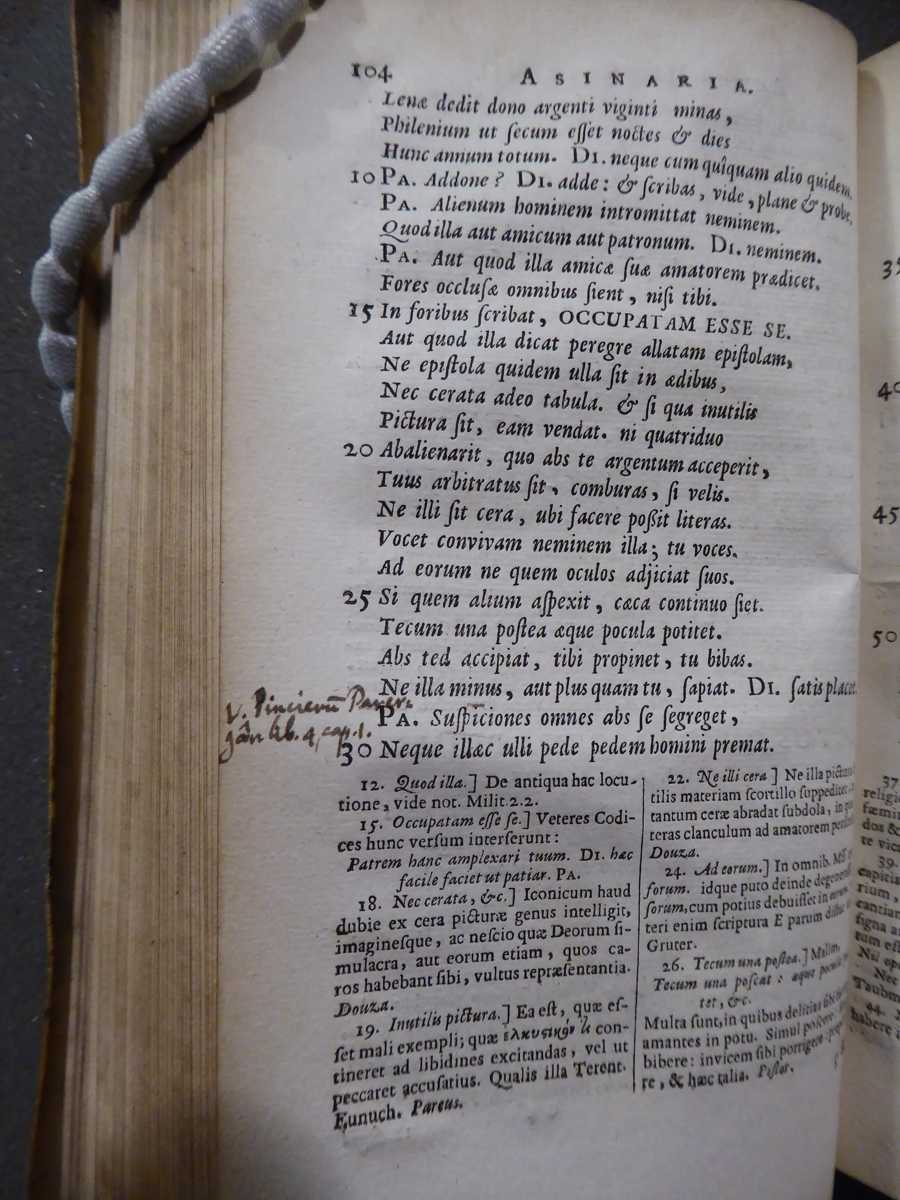 104 ASINARIA.
Lenæ dedit dono argenti viginti minas,
Philenium ut ſecum eſſet noctes & dies
Hunc annum totum. DI. neque cum quîquam alio quidem.
10 PA. Addone? DI. adde: & ſcribas, vide, plane & probe.
PA. Alienum hominem intromittat neminem.
Quod illa aut amicum aut patronum. DI. neminem.
PA. Aut quod illa amicæ ſuæ amatorem prædicet.
Fores occluſæ omnibus ſient, niſi tibi.
15 In foribus ſcribat, OCCUPATAM ESSE SE.
Aut quod illa dicat peregre allatam epiſtolam,
Ne epiſtola quidem ulla ſit in ædibus,
Nec cerata adeo tabula. & ſi qua inutilis
Pictura ſit, eam vendat. ni quatriduo
20 Abalienarit, quo abs te argentum acceperit,
Tuus arbitratus ſit, comburas, ſi velis.
Ne illi ſit cera, ubi facere poßit literas.
Vocet convivam neminem illa; tu voces.
Ad eorum ne quem oculos adjiciat ſuos.
25 Si quem alium aſpexit, cæca continuo ſiet.
Tecum una poſtea æque pocula potitet.
Abs ted accipiat, tibi propinet, tu bibas.
Ne illa minus, aut plus quam tu, ſapiat. DI. ſatis placet.
PA. Suſpiciones omnes abs ſe ſegreget,
30 Neque illæc ulli pede pedem homini premat.
v. Pincierũ Parer.
lib. 4, cap. 1.
12. Quod illa.] De antiqua hac locu-
tione, vide not. Milit. 2.2.
15. Occupatam eſſe ſe.] Veteres Codi-
ces hunc verſum interſerunt:
Patrem hanc amplexari tuum. DI. hæc
facile faciet ut patiar. PA.
18. Nec cerata, &c.] Iconicum haud
dubie ex cera picturæ genus intelligit,
imagineſque, ac neſcio quæ Deorum ſi-
mulacra, aut eorum etiam, quos ca-
ros habebant ſibi, vultus repræſentantia.
Douza.
19. Inutilis pictura.] Ea eſt, quæ eſ-
ſet mali exempli; quæ ἑλκυστικόν τι con-
tineret ad libidines excitandas, vel ut
peccaret accuſatius. Qualis illa Terent.
Eunuch. Pareus.
22. Ne illi cera] Ne illa pictura
tilis materiam ſcortillo ſuppeditet
tantum ceræ abradat ſubdola, in
teras clanculum ad amatorem
Douza.
24. Ad eorum.] In omnib. Mſſ
forum. idque puto deinde
ſorum, cum potius debuiſſet in
teri enim ſcriptura E parum
Gruter.
26. Tecum una poſtea.] Malim,
Tecum una poſcat: æque pocula
tet, &c.
Multa ſunt, in quibus delicias ſibi
amantes in potu. Simul poſcere
bibere: invicem ſibi porrigere:
re, & hæc talia. Piſtor.
35
40
45
50
37
religio
fæmin
dos &
te vica
39.
capitia
rium,
cantian
ſigna a
tum eſt
Nil ope
Nec
Taubm
44.
habere a